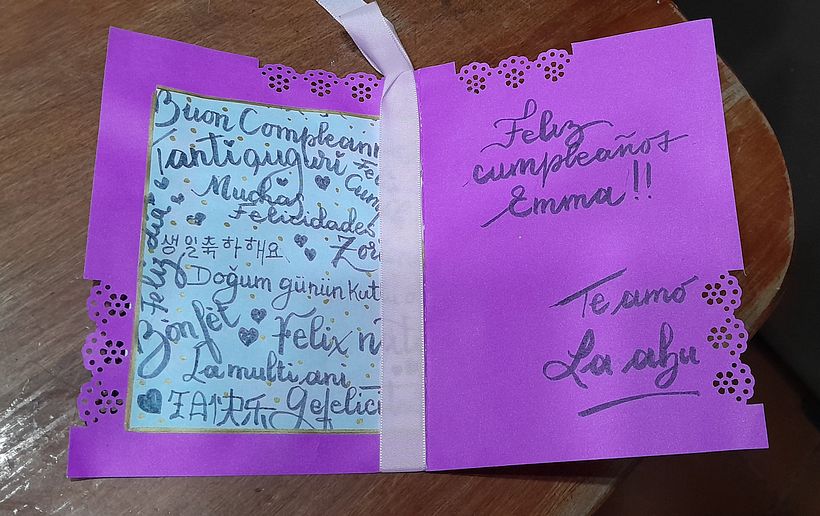 Buon Compleann
Tanti auguri Fe
Cum
Muchas
Felicidades
Feliz dia
생일축하해요
Zor
Doğum günün kut
Bonfet
Felix n
La multi ani
快乐 Gefelici
Feliz
cumpleaños
Emma!!
Te amo
La abu